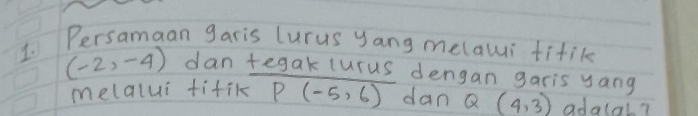 1. Persamaan garis lurus yang melalui titik
(-2,-4) dan tegak lurus dengan garis yang
melalui titik P (-5,6) dan Q (4,3) adalah?